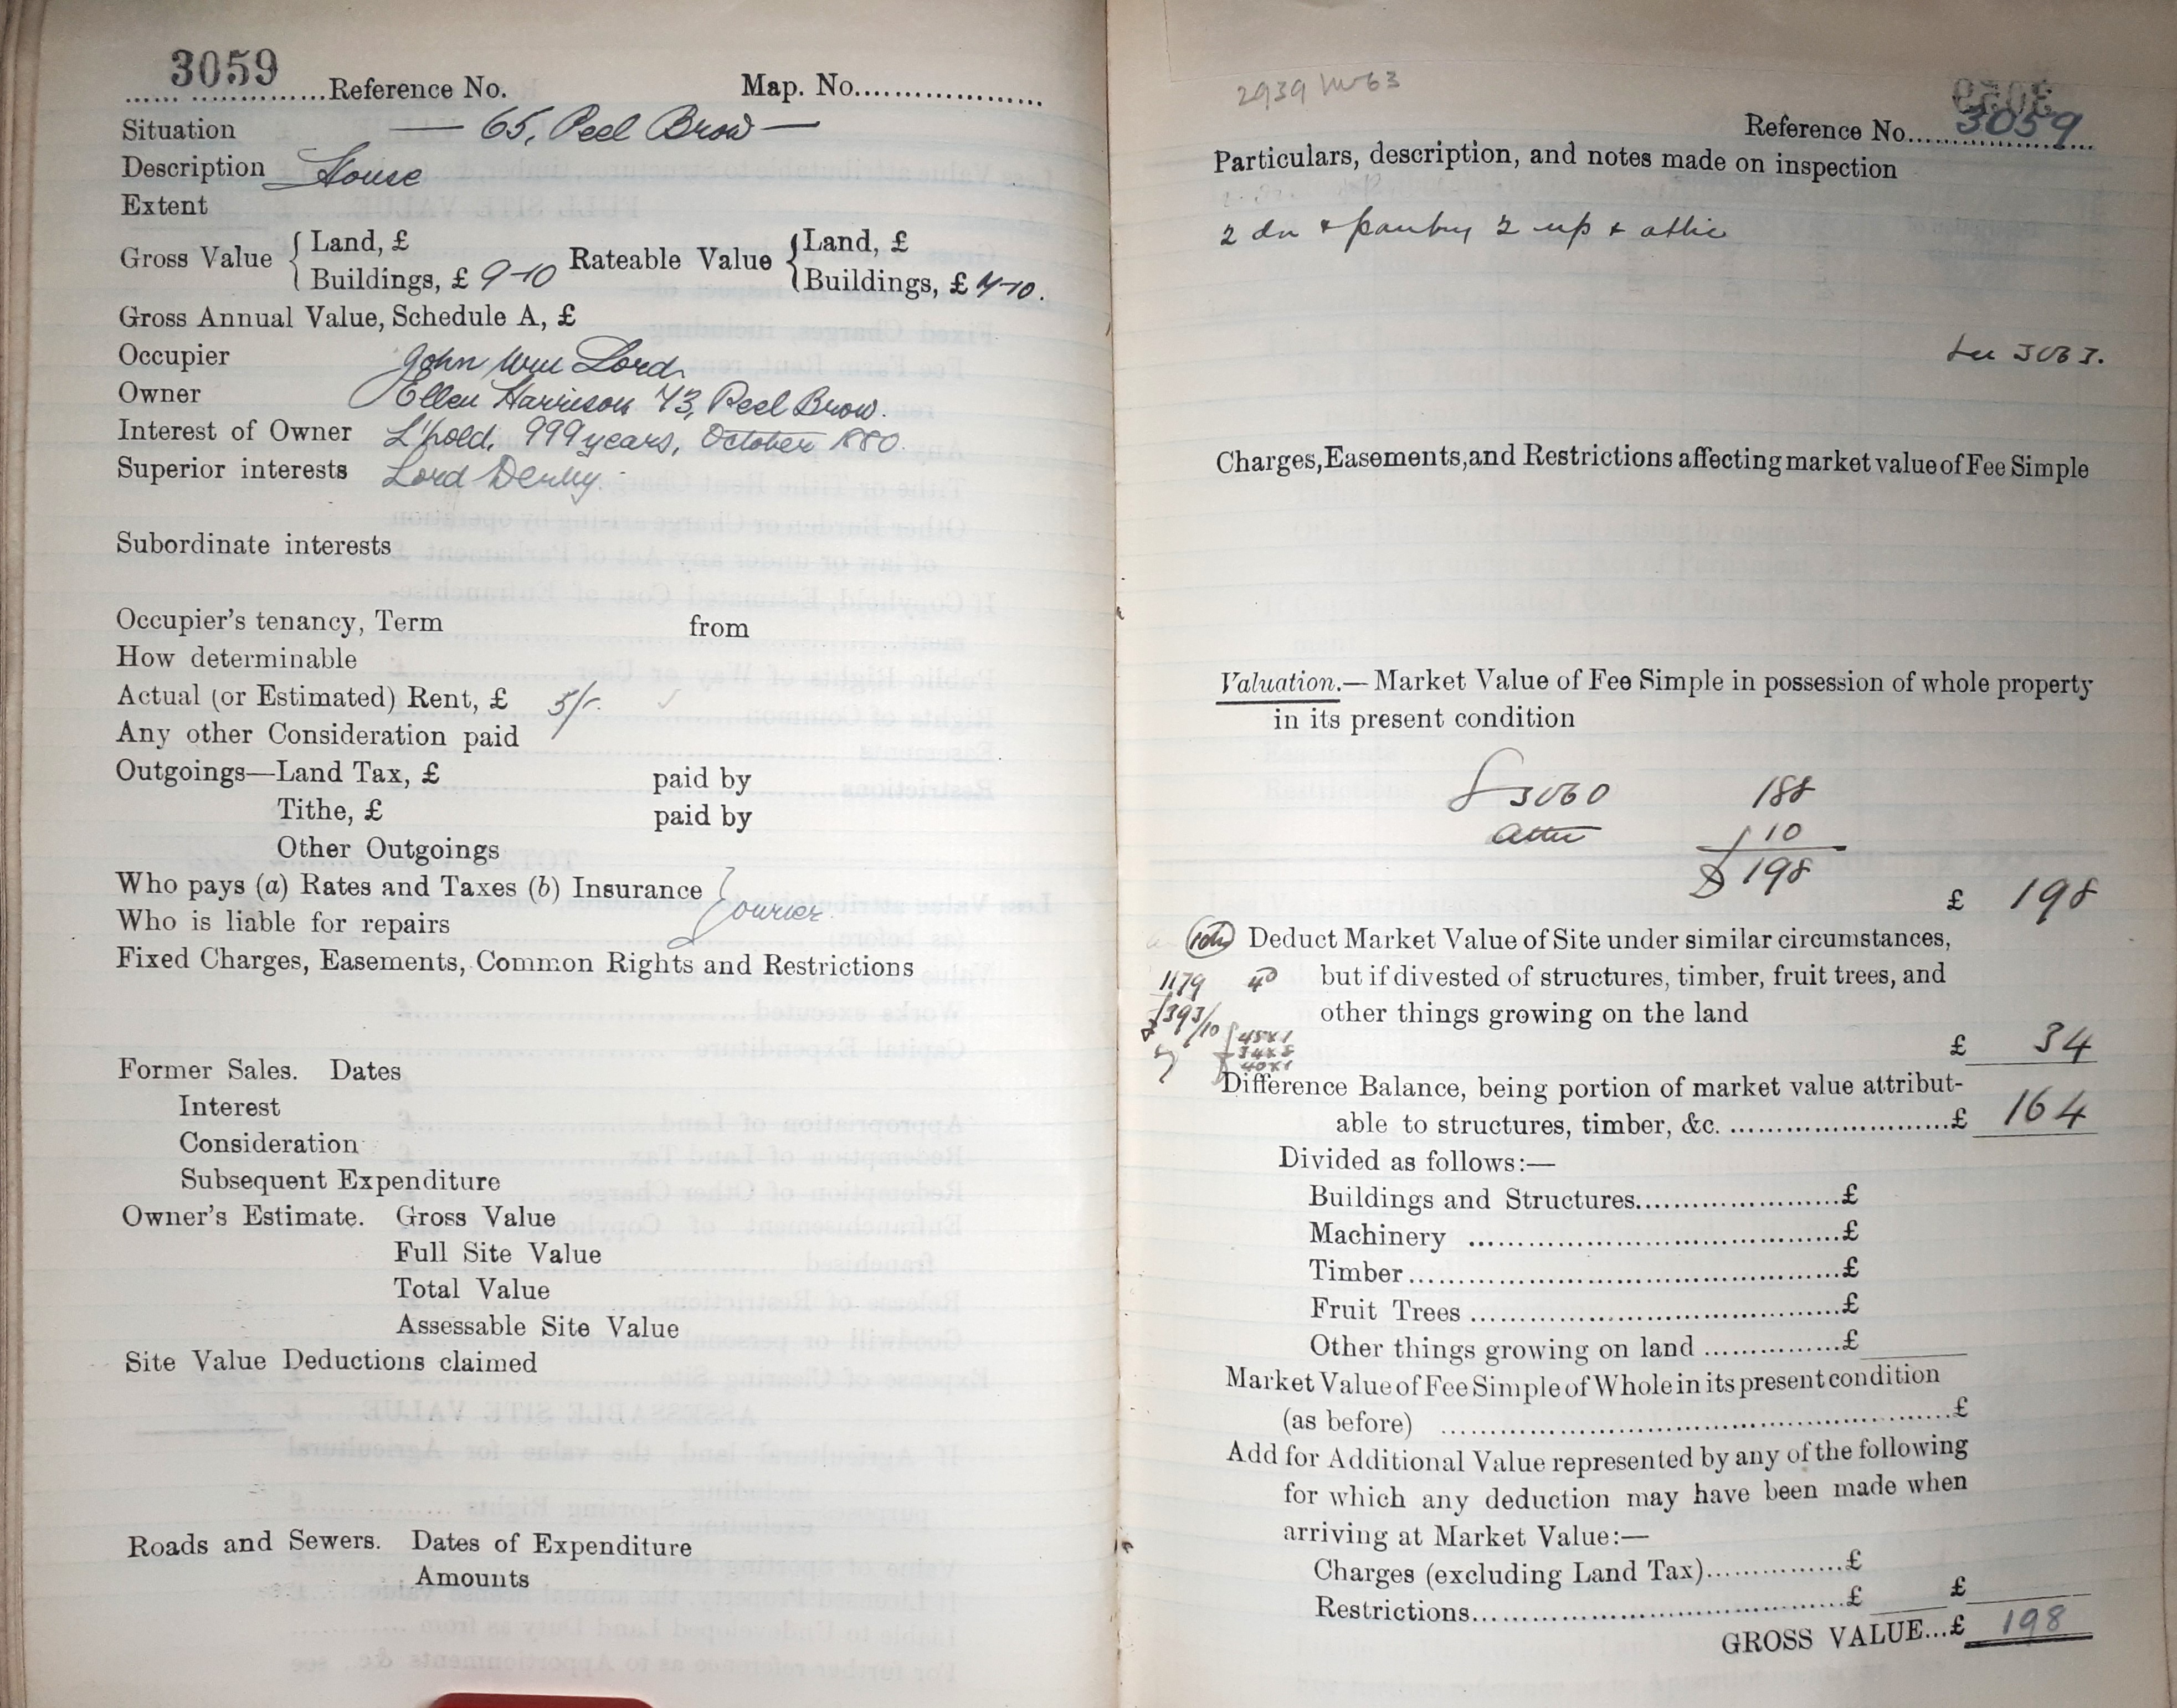 3059
Reference No. Map. No.
Situation — 65, Peel Brow —
Description House
Extent
Gross Value { Land, £ Rateable Value { Land, £
Buildings, £ 9-10 Buildings, £ 7-10.
Gross Annual Value, Schedule A, £
Occupier John Wm Lord.
Owner Ellen Harrison 73, Peel Brow.
Interest of Owner L'hold, 999 years, October 1880.
Superior interests Lord Derby.
Subordinate interests
Occupier's tenancy, Term from
How determinable
Actual (or Estimated) Rent, £ 5/-.
Any other Consideration paid
Outgoings—Land Tax, £ paid by
Tithe, £ paid by
Other Outgoings
Who pays (a) Rates and Taxes (b) Insurance }
Who is liable for repairs } owner.
Fixed Charges, Easements, Common Rights and Restrictions
Former Sales. Dates
Interest
Consideration
Subsequent Expenditure
Owner's Estimate. Gross Value
Full Site Value
Total Value
Assessable Site Value
Site Value Deductions claimed
Roads and Sewers. Dates of Expenditure
Amounts
2939 63
Reference No. 3059
Particulars, description, and notes made on inspection
2 dn & pantry 2 up & attic
See 3063.
Charges, Easements, and Restrictions affecting market value of Fee Simple
Valuation.— Market Value of Fee Simple in possession of whole property
in its present condition
3060 188
attic 10
£ 198
£ 198
Deduct Market Value of Site under similar circumstances,
1179 40 but if divested of structures, timber, fruit trees, and
£393/10 other things growing on the land
45x1
34x5
40x1
£ 34
Difference Balance, being portion of market value attribut-
able to structures, timber, &c. £ 164
Divided as follows:—
Buildings and Structures £
Machinery £
Timber £
Fruit Trees £
Other things growing on land £
Market Value of Fee Simple of Whole in its present condition
(as before) £
Add for Additional Value represented by any of the following
for which any deduction may have been made when
arriving at Market Value:—
Charges (excluding Land Tax) £
Restrictions £ £
GROSS VALUE...£ 198